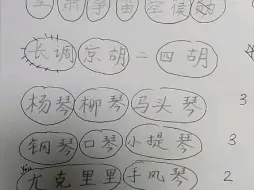 长调 京胡 二 四胡
杨琴 柳琴 马头琴 3
钢琴 口琴 小提琴 3
尤克里里 手风琴 2